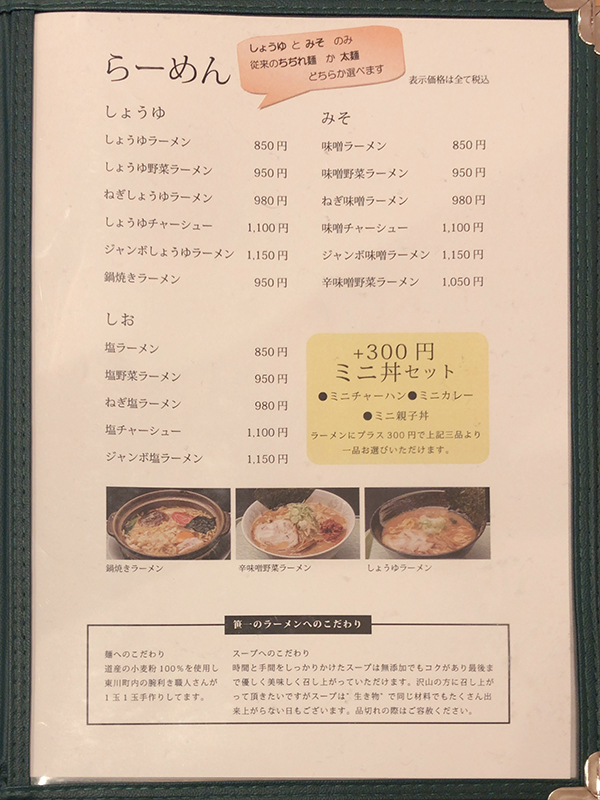 らーめん
しょうゆ と みそ のみ
従来のちぢれ麺 か 太麺
どちらか選べます
表示価格は全て税込
しょうゆ
しょうゆラーメン 850円
しょうゆ野菜ラーメン 950円
ねぎしょうゆラーメン 980円
しょうゆチャーシュー 1,100円
ジャンボしょうゆラーメン 1,150円
鍋焼きラーメン 950円
みそ
味噌ラーメン 850円
味噌野菜ラーメン 950円
ねぎ味噌ラーメン 980円
味噌チャーシュー 1,100円
ジャンボ味噌ラーメン 1,150円
辛味噌野菜ラーメン 1,050円
しお
塩ラーメン 850円
塩野菜ラーメン 950円
ねぎ塩ラーメン 980円
塩チャーシュー 1,100円
ジャンボ塩ラーメン 1,150円
+300円
ミニ丼セット
●ミニチャーハン●ミニカレー
●ミニ親子丼
ラーメンにプラス300円で上記三品より
一品お選びいただけます。
鍋焼きラーメン
辛味噌野菜ラーメン
しょうゆラーメン
笹一のラーメンへのこだわり
麺へのこだわり
道産の小麦粉100%を使用し
東川町内の腕利き職人さんが
1玉1玉手作りしてます。
スープへのこだわり
時間と手間をしっかりかけたスープは無添加でもコクがあり最後ま
で優しく美味しく召し上がっていただけます。沢山の方に召し上が
って頂きたいですがスープは"生き物"で同じ材料でもたくさん出
来上がらない日もございます。品切れの際はご容赦ください。